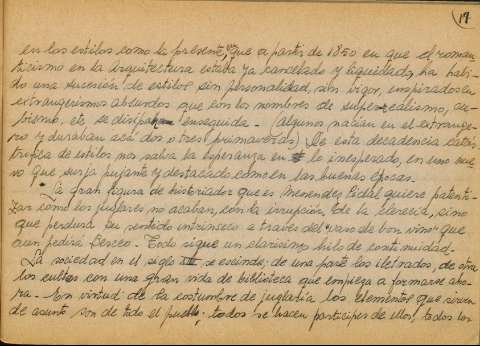 17
en los estilos como la presente, ya que a partir de 1850 en que el roman
ticismo en la arquitectura estaba ya cancelado y liquidado, ha habi-
do una sucesión de estilos sin personalidad, sin vigor, inspirados en
extrangerismos absurdos que con los nombres de super-realismo, cu-
bismo, etc se disipan enseguida - (algunos nacían en el extrange-
ro y duraban acá dos o tres primaveras) De esta decadencia catas-
trófica de estilos nos salva la esperanza en lo inesperado, en uno nue-
vo que surja pujante y destacado como en las buenas épocas.
La gran figura de historiador que es Menendez Pidal quiere patenti-
zar como los juglares no acaban, con la irrupción de la clerecía, sino
que perdura su sentido intrinseco a traves del "vaso de bon vino" que
aun pedirá Berceo. Todo sigue un clarisimo hilo de continuidad.
La sociedad en el siglo XIII se escinde, de una parte los iletrados, de otra
los cultos con una gran vida de biblioteca que empieza a formarse aho-
ra. - En virtud de la costumbre de juglaria los elementos que sirven
de asunto son de todo el pueblo; todos se hacen participes de ellos, todos los